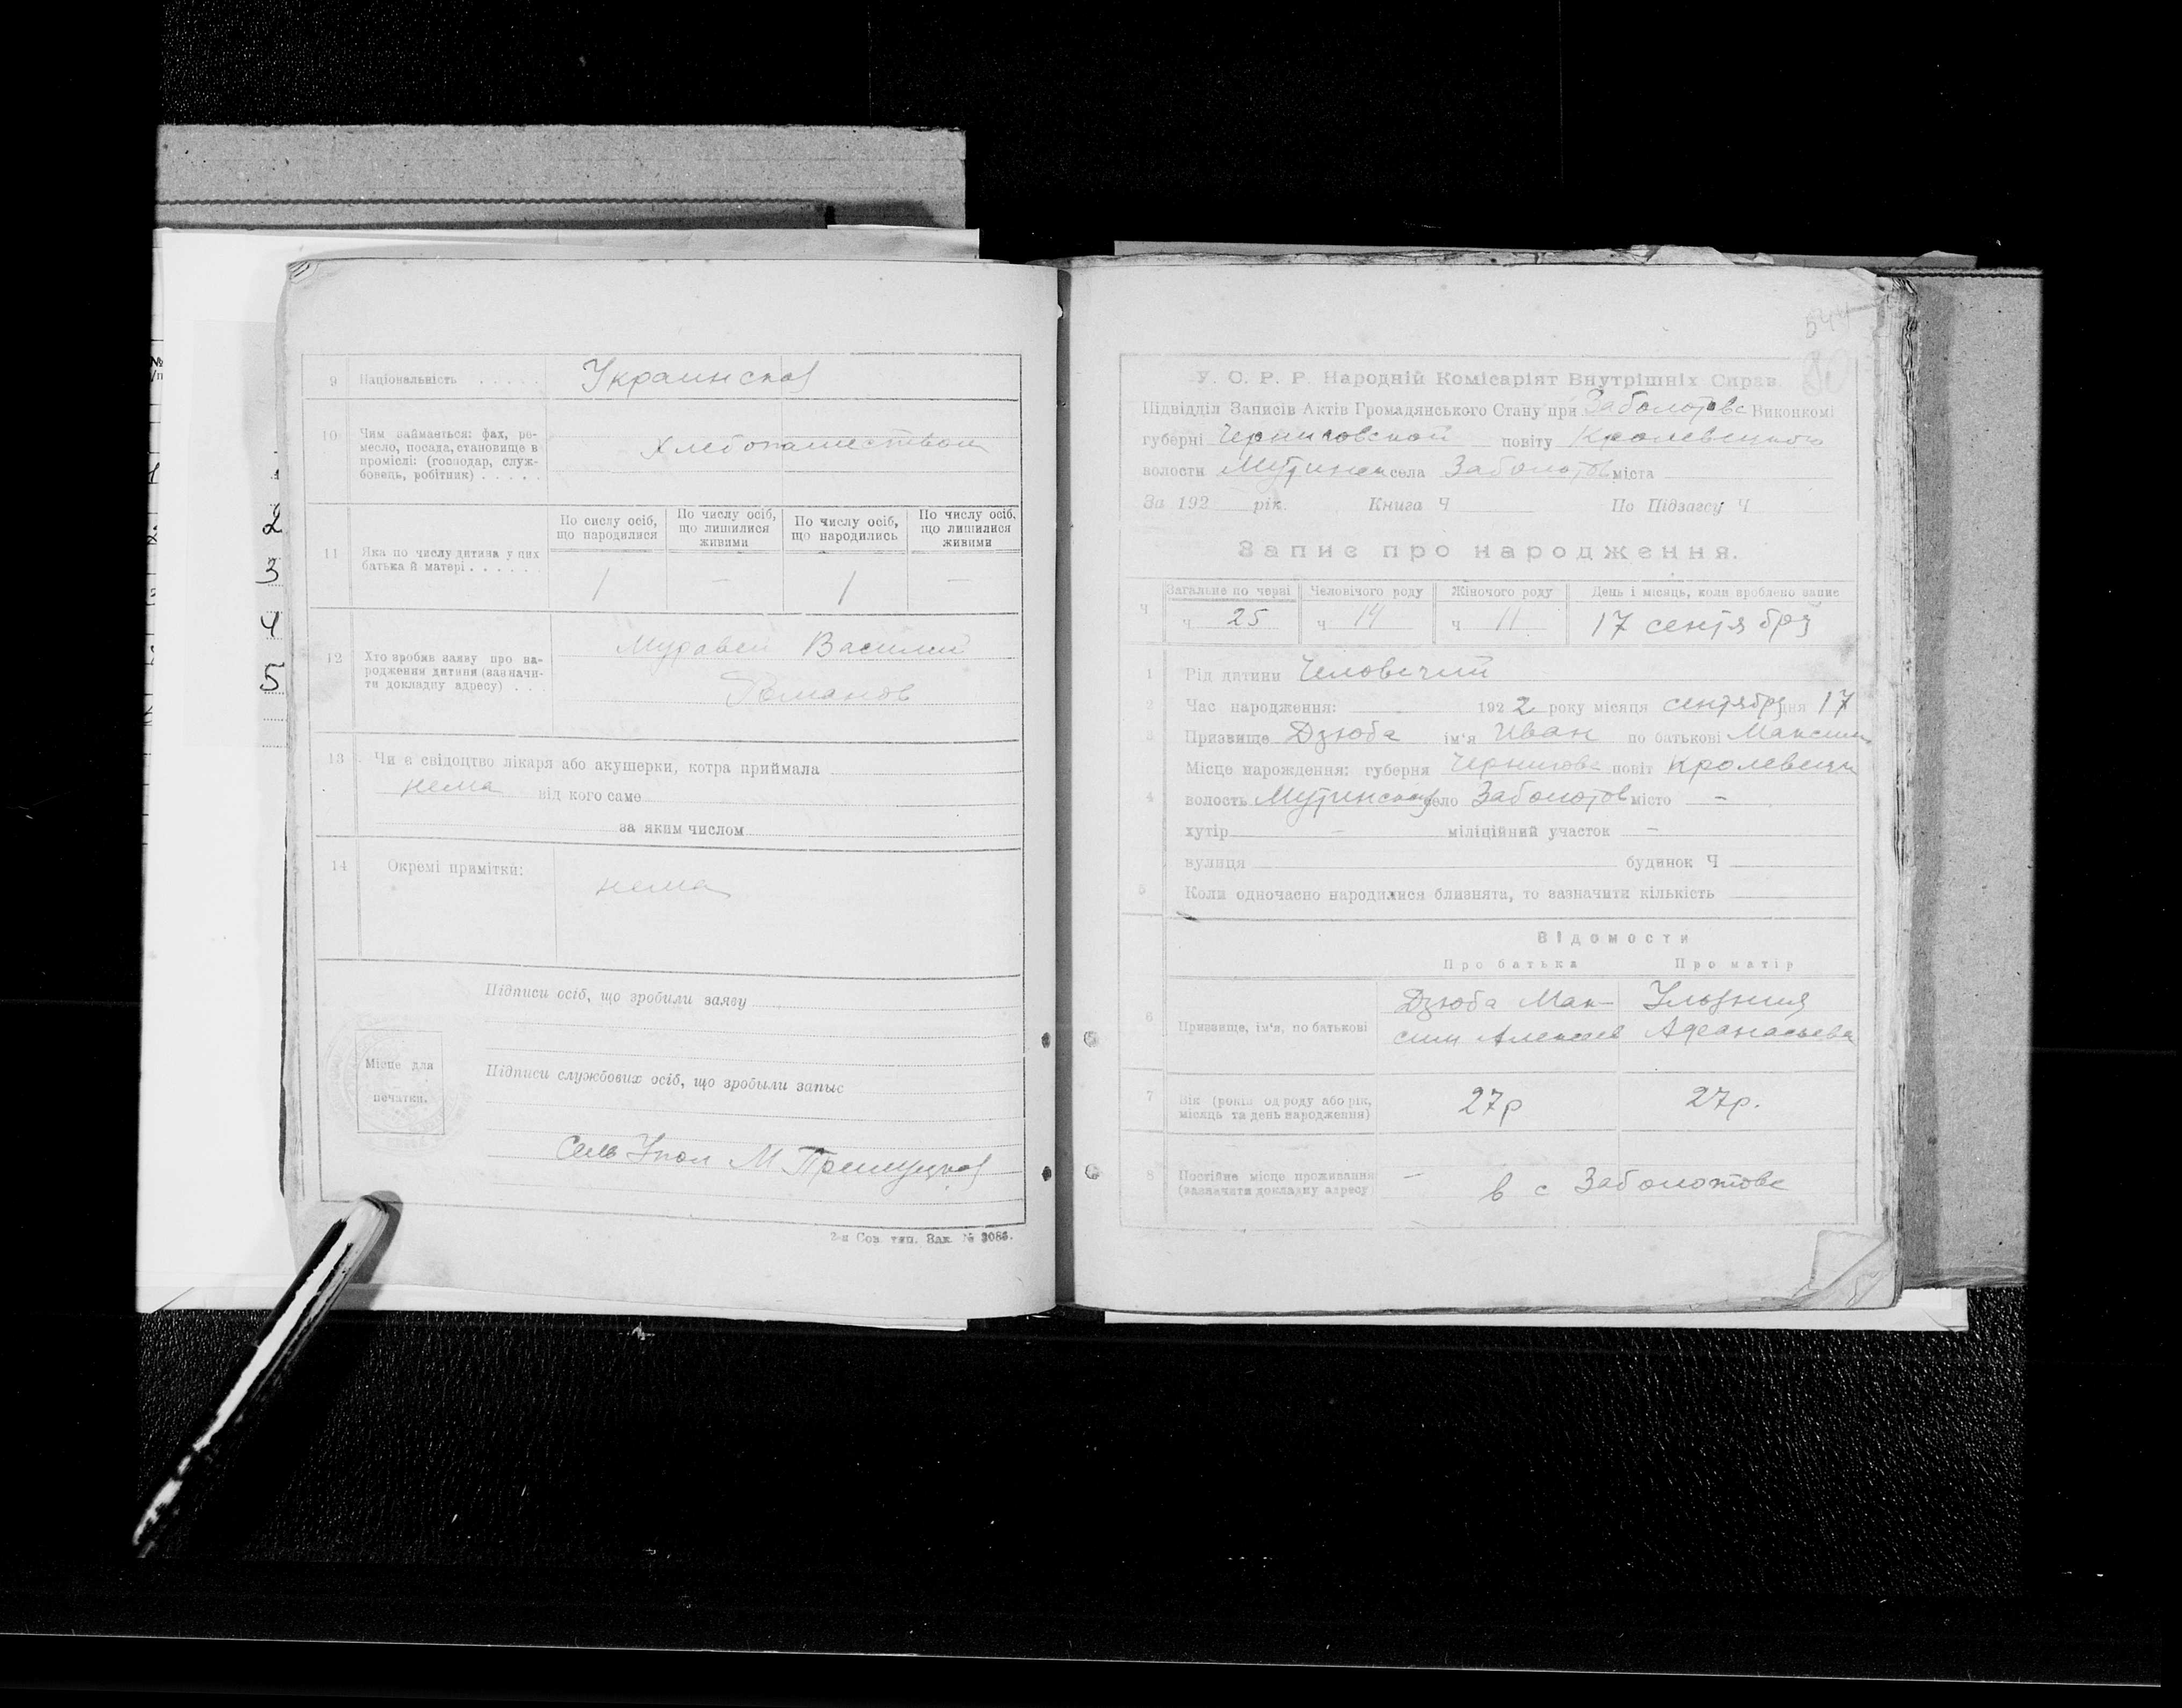 №
/п
1
2
3
4
5
9 Національність . . . . . Украинская
10 Чим займається: фах, ре-
месло, посада, становище в
промислі: (господар, служ-
бовець, робітник) . . . . .
Хлебопашеством
По сислу осіб,
що народилися
По числу осіб,
що лишилися
живими
По числу осіб,
що народились
По числу осіб,
що лишилися
живими
11 Яка по числу дитина у цих
батька й матері . . . . . .
1 — 1 —
12 Хто зробив заяву про на-
родження дитини (зазначи-
ти докладну адресу) . . .
Муравей Василий
Романов
13 Чи є свідоцтво лікаря або акушерки, котра приймала
нема від кого саме
за яким числом
14 Окремі примітки: нема
Підписи осіб, що зробили заяву
Місце для
печатки.
Підписи службових осіб, що зробыли запыс
Сель Упол М
2-я Сов. тип. Зак. №
544
80
У. С. Р. Р. Народній Комісаріят Внутрішніх Справ.
Підвідділ Записів Актів Громадянського Стану при Заболотовс Виконкомі
губерні Черниговской повіту Кролевецкого
волости Мутинск села Заболотов міста
За 192 рік. Книга Ч По Підзагсу Ч
Запис про народження.
Ч
Загальне по черві Человічого роду Жіночого роду День і місяць, коли зроблено запис
ч 25 ч 14 ч 11 17 сентября
1 Рід дитини Человечий
2 Час народження: 192 2 року місяця сентября дня 17
3 Призвище Дзюба ім'я Иван по батькові Максим
4 Місце нарождення: губерня Черниговс повіт Кролевецк
волость Мутинская село Заболотов місто —
хутір — міліційний участок —
вулиця будинок Ч
5 Коли одночасно народилися близнята, то зазначити кількість
Відомости
Про батька Про матір
6 Призвище, ім'я, по батькові
Дзюба Мак-
сим Алексеев
Ульяния
Афанасьева
7 Вік (років од роду або рік,
місяць та день народження)
27р 27р.
8 Постійне місце проживання
(зазначити докладну адресу)
— в с Заболотове